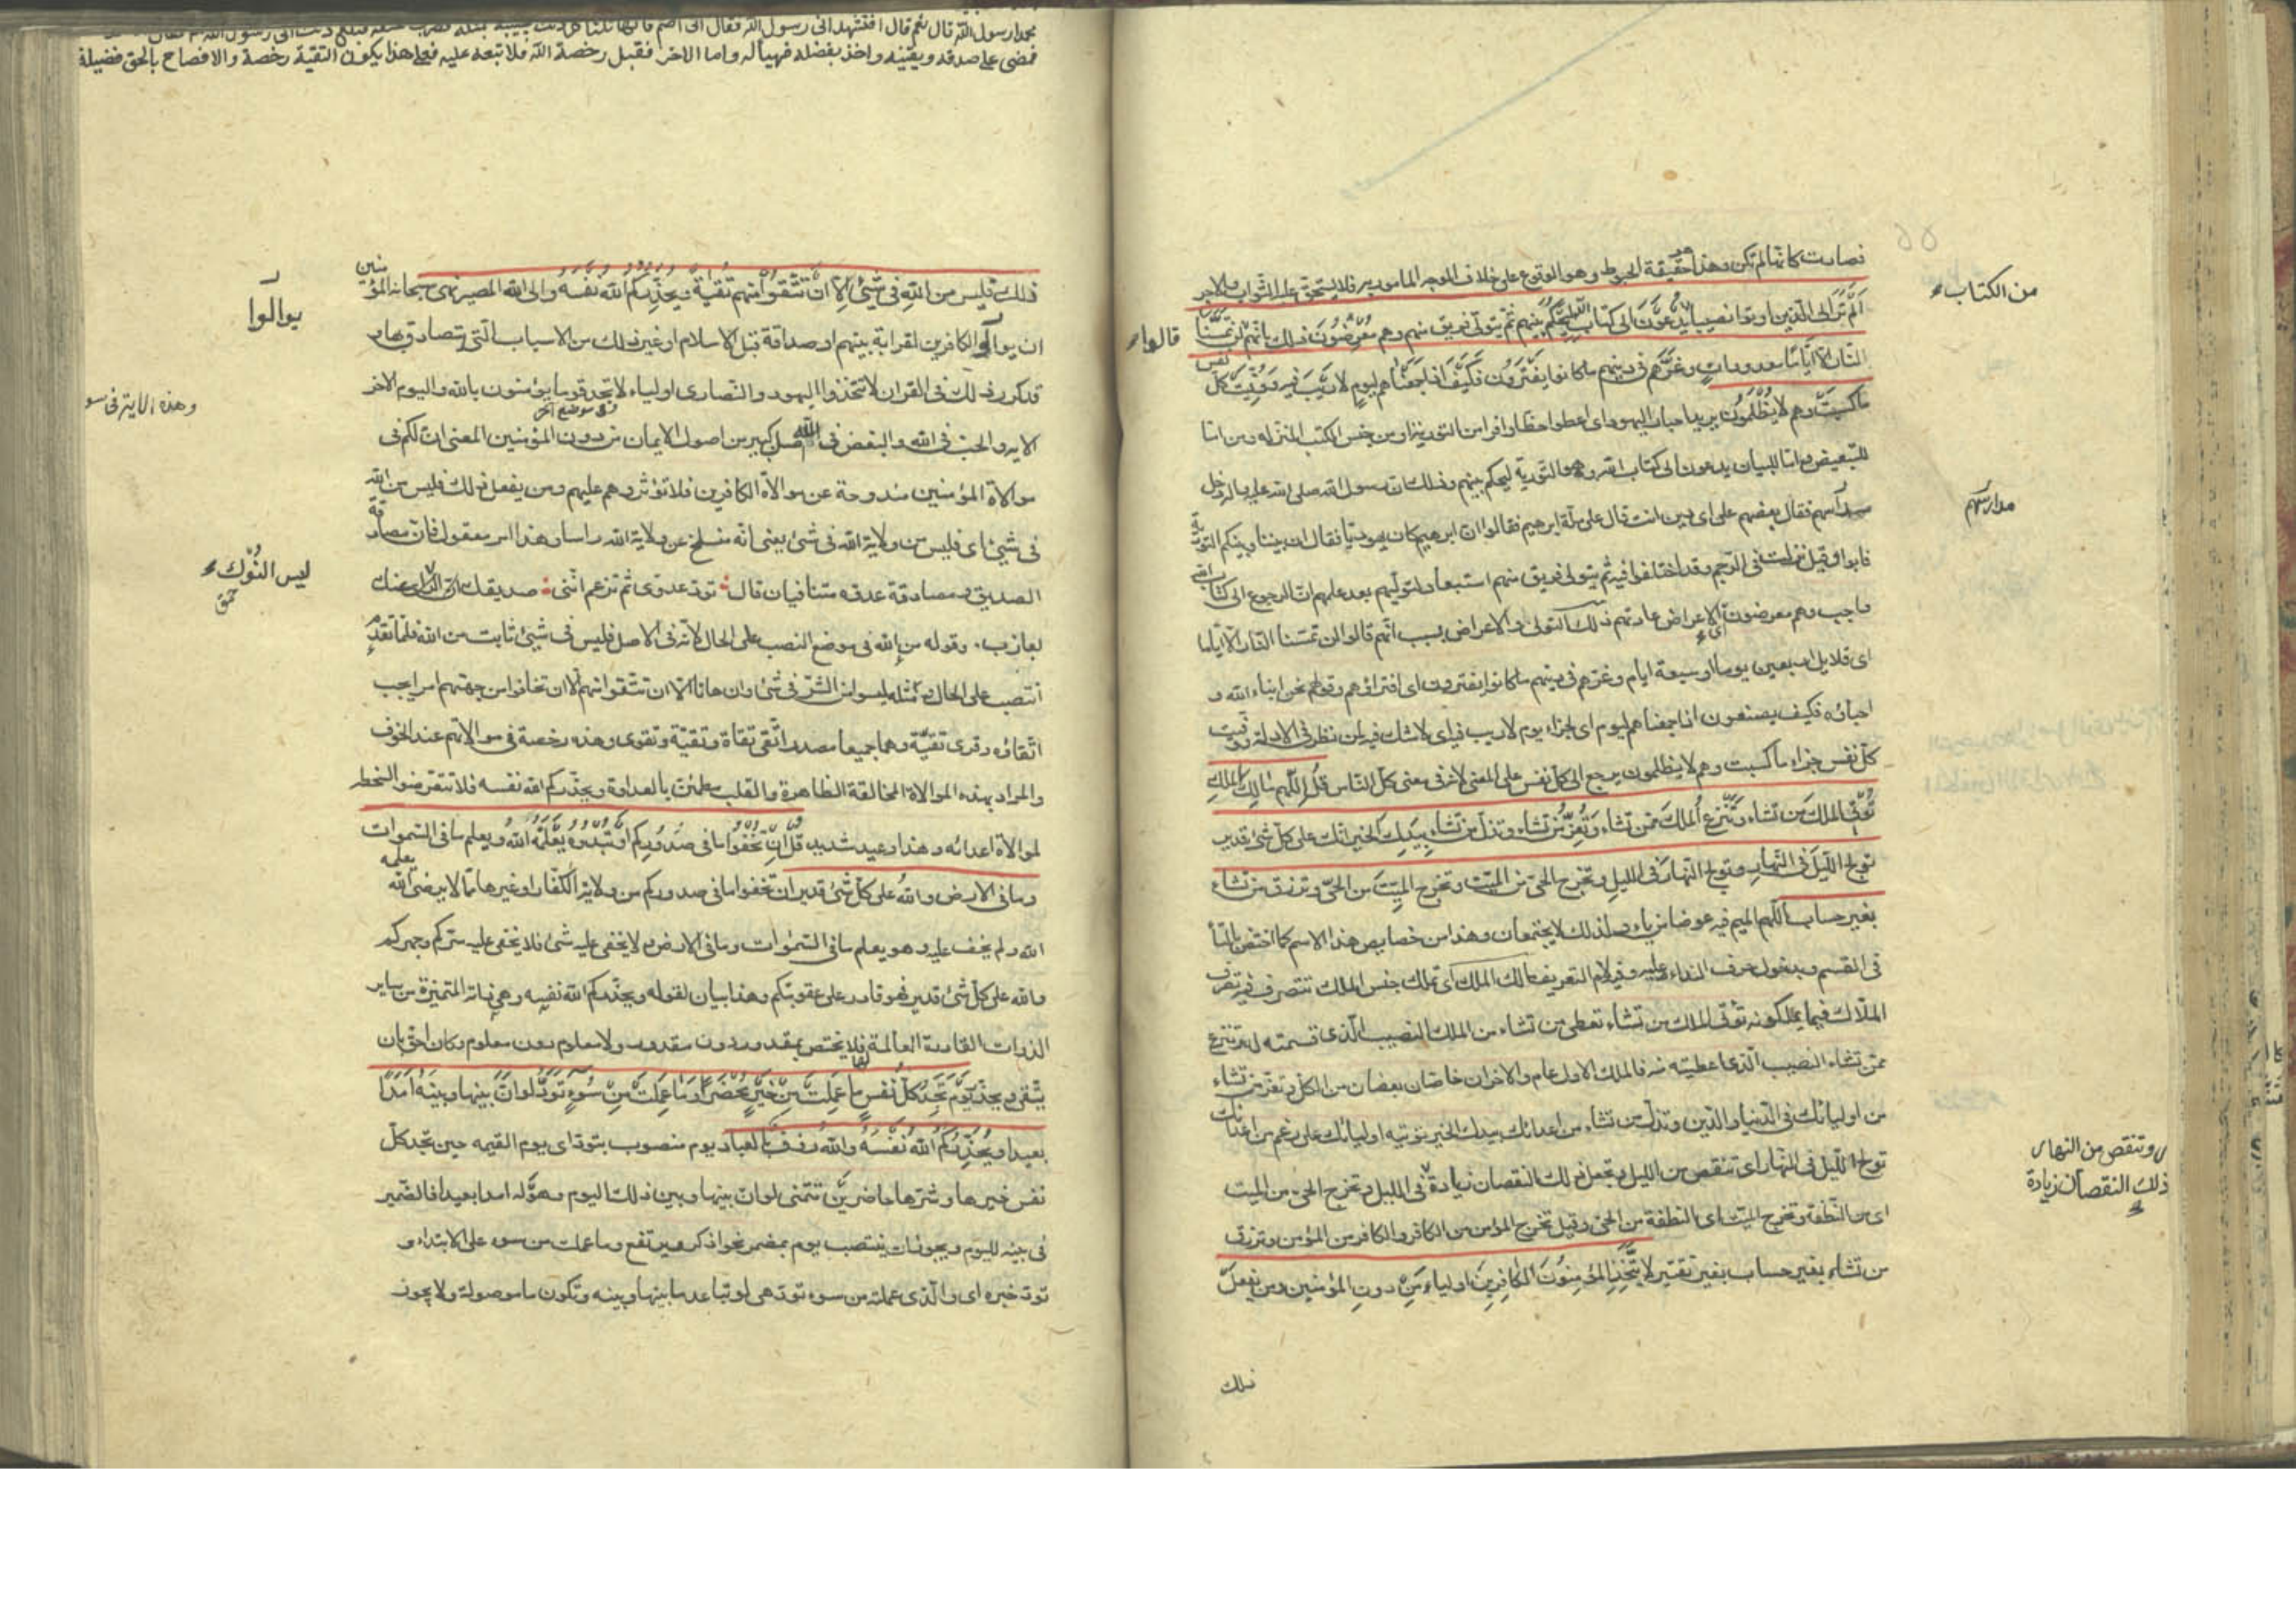 فصارت كانها لم تكن وهذا حقيقة الحبوط وهو الوقوع على خلاف الوجه المامور به فلا يستحق عليه الثواب والاجر
من الكتاب
اَلَمْ تَرَ الى الّذين اوتوا نصيبا يُدْعَوْنَ الى كتاب اللّه لِيَحْكُمَ بينهم ثم يتولّى فريق منهم وهم مُعْرِضُونَ ذلك بانّهم لن تمسَّنَا
قالوا
النّار الّا ايّامًا معدودات وغرّهم فى دينهم ما كانوا يفترون فكيف اذا جمعناهم ليومٍ لا ريبَ فيه ووُفِّيَت كلّ نفس
ما كسبت وهم لا يُظْلَمُون يريد احبار اليهود اى اعطوا حظا وافرا من التورية او من جنس الكتب المنزلة ومن امّا
للتبعيض وامّا للبيان يدعون الى كتاب اللّه وهو التورية ليحكم بينهم وذلك ان رسول اللّه صلى اللّه عليه واله دخل
مدارسهم
مدراسهم فقال بعضهم على اى دين انت قال على ملّة ابرهيم فقالوا ان ابرهيم كان يهوديّا فقال ان بيننا وبينكم التورية
فابوا وقيل نزلت فى الرّجم وقد اختلفوا فيه ثم يتولى فريق منهم استبعاد لتولّيهم بعد علمهم انّ الرجوع الى كتاب اللّه
واجب وهم معرضون اى الاعراض عادتهم ذلك التولى والاعراض بسبب انّهم قالوا لن تمسّنا النّار الّا ايّاما
اى قلايل اربعين يوما او سبعة ايام وغرّهم فى دينهم ما كانوا يفترون اى افتراؤهم وقولهم نحن ابناء اللّه و
احباؤه فكيف يصنعون اذا جمعناهم ليوم اى لجزاء يوم لا ريب فيه اى لا شك فيه لمن نظر فى الادلة ووفّيت
كلّ نفس جزاء ما كسبت وهم لا يظلمون يرجع الى كلّ نفس على المعنى لانه فى معنى كلّ النّاس قُلِ اللّهم مَالِكَ المُلكِ
تُؤْتِى الملكَ من تشاء وتَنْزِع المُلكَ ممّن تشاء وتُعِزّ من تشاء وتذلّ من تشاء بِيَدِكَ الخير انّك على كلّ شئ قدير
تولج اللّيلَ فى النّهارِ وتولج النّهارَ فى الليلِ وتخرج الحىّ من الميّت وتخرج الميّتَ من الحىّ وترزق من تشاء
بغير حساب اللّهم الميم فيه عوضا من ياء ولذلك لا يجتمعان وهذا من خصايص هذا الاسم كما اختصّ بالتاء
فى القسم وبدخول حرف النداء عليه وفيه لام التعريف مالك الملك اى تملك جنس الملك تتصرف فيه تصرف
الملّاك فيما يملكونه تؤتى الملك من تشاء تعطى من تشاء من الملك النصيب الّذى قسمته له وتنزع
ممّن تشاء النصيب الّذى اعطيته منه فالملك الاول عام والاخران خاصّان بعضان من الكلّ وتعزّ من تشاء
من اوليائك فى الدّنيا والدّين وتذلّ من تشاء من اعدائك بيدك الخير تؤتيه اوليائك على رغم من اعدائك
تولج اللّيل فى النّهار اى تنقص من الليل وتجعل ذلك النقصان زيادة فى الليل وتخرج الحىّ من الميت
وتنقص من النهار
ذلك النقصان زيادة
اى من النّطفة وتخرج الميّت اى النطفة من الحىّ وقيل تخرج المؤمن من الكافر والكافر من المؤمن وترزق
من تشاء بغير حساب بغير تقتير لا يتّخِذِ المُؤمِنُونَ الكَافِرِينَ اولياءَ مِنْ دونِ المُؤمنين ومن يفعلْ
ذلك
محمدا رسول اللّه قال نعم قال افتشهد انى رسول اللّه فقال انى اصم قالها ثلثا كل ذلك يجيبه بمثله فضرب عنقه فبلغ ذلك الى رسول اللّه فقال
فمضى على صدقه ويقينه واخذ بفضله فهنيأ له واما الاخر فقبل رخصة اللّه فلا تبعة عليه فعلى هذا يكون التقيّة رخصة والافصاح بالحق فضيلة
ذلك فليس من اللّهِ فى شئٍ الّا ان تتّقوا منهم تُقيةً ويحذّركم اللّه نفسه والى اللّه المصير نهى سبحانه المؤمنين
يوالوا
ان يوالوا الكافرين لقرابة بينهم او صداقة قبل الاسلام او غير ذلك من الاسباب الّتى يتصادق بها و
قد كرر ذلك فى القران لا تتّخذوا اليهود والنّصارى اولياء لا تجد قوما يؤمنون باللّه واليوم الاخر
وهذه الاية فى سو
فى موضع اخر
الاية والحبّ فى اللّه والبغض فى اللّه اصل كبير من اصول الايمان من دون المؤمنين المعنى انّ لكم فى
موالاة المؤمنين مندوحة عن موالاة الكافرين فلا تؤثروهم عليهم ومن يفعل ذلك فليس من اللّه
فى شئ اى فليس من ولاية اللّه فى شئ يعنى انّه منسلخ عن ولاية اللّه راسا وهذا امر معقول فانّ مصادقة
ليس النُّوكُ
الصديق ومصادقة عدوّه متنافيان قال تودّ عدوّى ثم تزعم انّنى صديقك عنك
بعازب وقوله من اللّه فى موضع النصب على الحال لانّه فى الاصل فليس فى شئ ثابت من اللّه فلمّا تقدّم
انتصب على الحال ومثله ليسوا من الشرّ فى شئ وان هانا الّا ان تتّقوا منهم الّا ان تخافوا من جهتهم امرا يجب
اتّقاؤه وقرى تقيّة وهما جميعا مصدر اتّقى تقاة وتقيّة وتقوى وهذه رخصة فى موالاتهم عند الخوف
والمراد بهذه الموالاة المخالقة الظاهرة والقلب مطمئن بالعداوة ويحذّركم اللّه نفسه فلا تتعرّضوا لسخطه
لموالاة اعدائه وهذا وعيد شديد قُلْ ان تُخْفُوا ما فى صُدُورِكم او تُبْدُوه يَعْلَمْه اللّه ويعلم ما فى السّموات
وما فى الارض واللّه على كلّ شئ قدير ان تخفوا ما فى صدوركم من ولاية الكفّار او غيرها ممّا لا يرضى اللّه يعلمه
اللّه ولم يخف عليه وهو يعلم ما فى السّموات وما فى الارض لا يخفى عليه شئ فلا يخفى عليه سرّكم وجهركم
واللّه على كلّ شئ قدير فهو قادر على عقوبتكم وهذا بيان لقوله ويحذّركم اللّه نفسه وهى ذاته المتميّزة من ساير
الذوات القادرة العالمة فلا يختصّ بمقدور دون مقدور ولا معلوم دون معلوم وكان احقّ بان
يتّقى ويحذر يَوْمَ تَجِدُ كلّ نفس ما عَمِلَتْ مِنْ خَيْرٍ مُحْضَرًا وَمَا عَمِلَتْ مِنْ سُوءٍ تَوَدُّ لو انّ بينها وبينَهُ امَدًا
بعيدا ويُحَذِّرُكُمُ اللّهُ نَفْسَهُ واللّه رؤف بالعباد يوم منصوب بتودّ اى يوم القيمة حين تجد كلّ
نفس خيرها وشرّها حاضرين تتمنى لو انّ بينها وبين ذلك اليوم وهوله امدا بعيدا فالضّمير
فى بينه لليوم ويجوز ان ينتصب يوم بمضمر نحو اذكر ويرتفع وما عملت من سوء على الابتداء و
تودّ خبره اى والّذى عملته من سوء تودّ هى لو تباعد ما بينها وبينه وتكون ما موصولة ولا يجوز